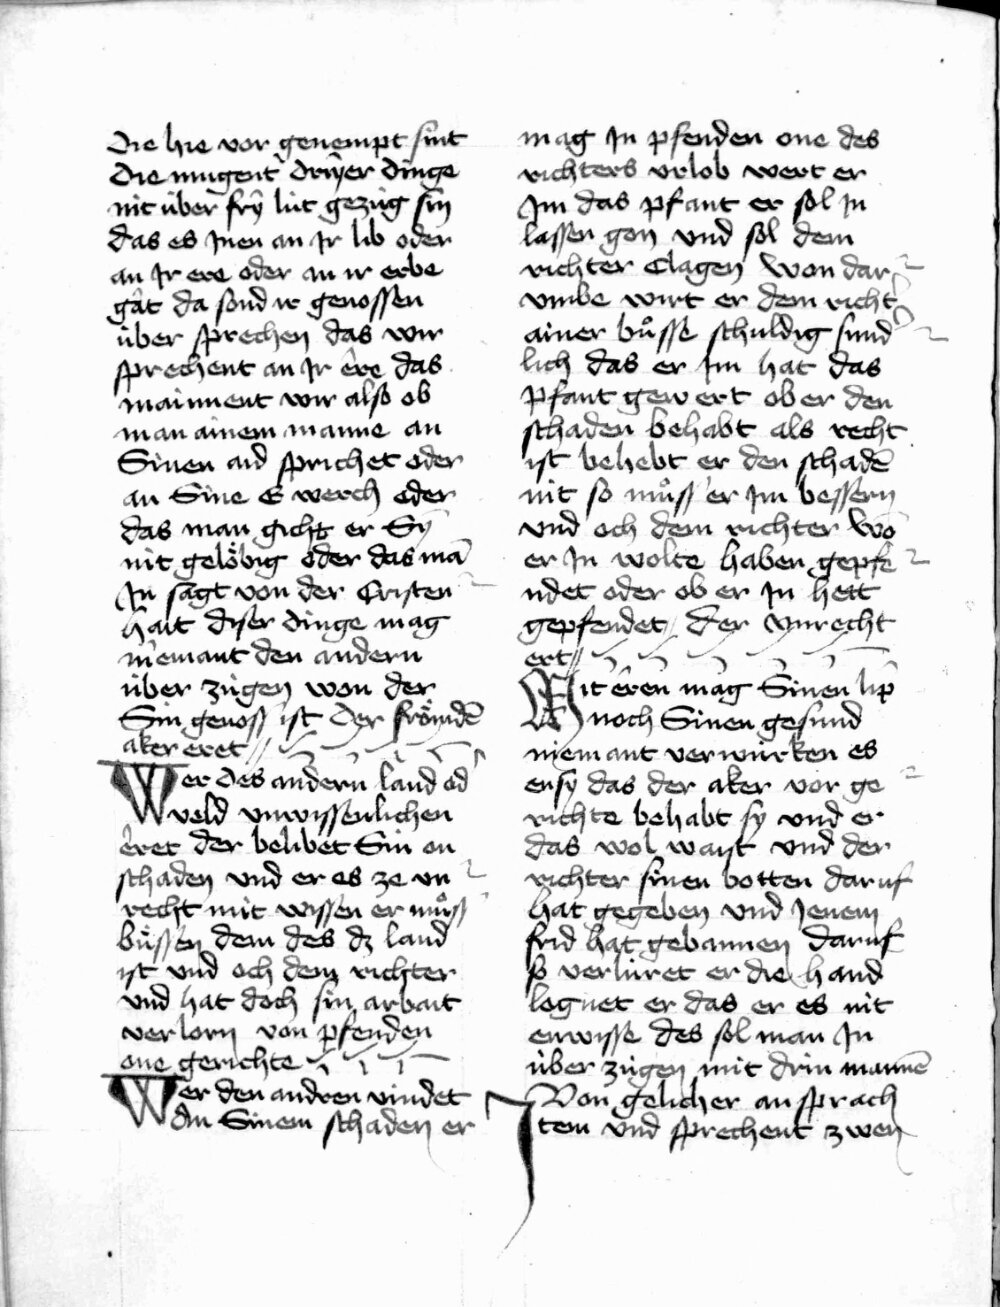 Die hie vor genempt sint
die mùgent drÿer dinge
nit ùber frÿ lùt gezùg sin
das es jnen an jr lib oder
an jr ere oder an ir erbe
gât da sond ir genossen
ùber sprechen das wir
sprechent an jr êre das
mainnent wir also ob
man ainem manne an
Sinen aid sprichet oder
an Sine E werch oder
das man gicht er Sÿ
nit gelöbig oder das mā
jn sagt von der Cristen
hait diser dinge mag
niemant den andern
ùber zùgen won der
Sin genoss ist Der frömdē
aker eret
Wer des andern land od
veld vnwissenlichen
êret der belibet Sin on
schaden vnd er es ze vn
recht mit wissen er můss
bůssen dem des dz land
ist vnd och dem richter
vnd hat doch sin arbait
verlorn von pfenden
one gerichte
Wer den andren vindet
an Sinem schaden er
mag jn pfenden one des
richters vrlob wert er
jm das pfant er sol jn
lassen gon vnd sol dem
richter Clagen won dar
vmbe wirt er dem richt
ainer bůsse schuldig sund
lich das er jm hat das
pfant gewert ob er den
schaden behabt als recht
ist behebt er den schadē
nit so můss er jm bessern
vnd och dem richter Wō
er jn wolte haben gepfe
ndet oder ob er jn hett
gepfendet Der vnrecht
ert
Mit êren mag Sinen lip
noch Sinen gesund
niemant verwùrken es
ensy das der aker vor ge
richte behabt sÿ vnd er
das wol waist vnd der
richter sinen botten daruf
hat gegeben vnd jenem
frid hat gebannen daruf
so verlùret er die hand
lognet er das er es nit
enwisse des sol man jn
ùber zùgen mit drin mannē
Von gelicher an sprach
Jtem vnd sprechent zwen